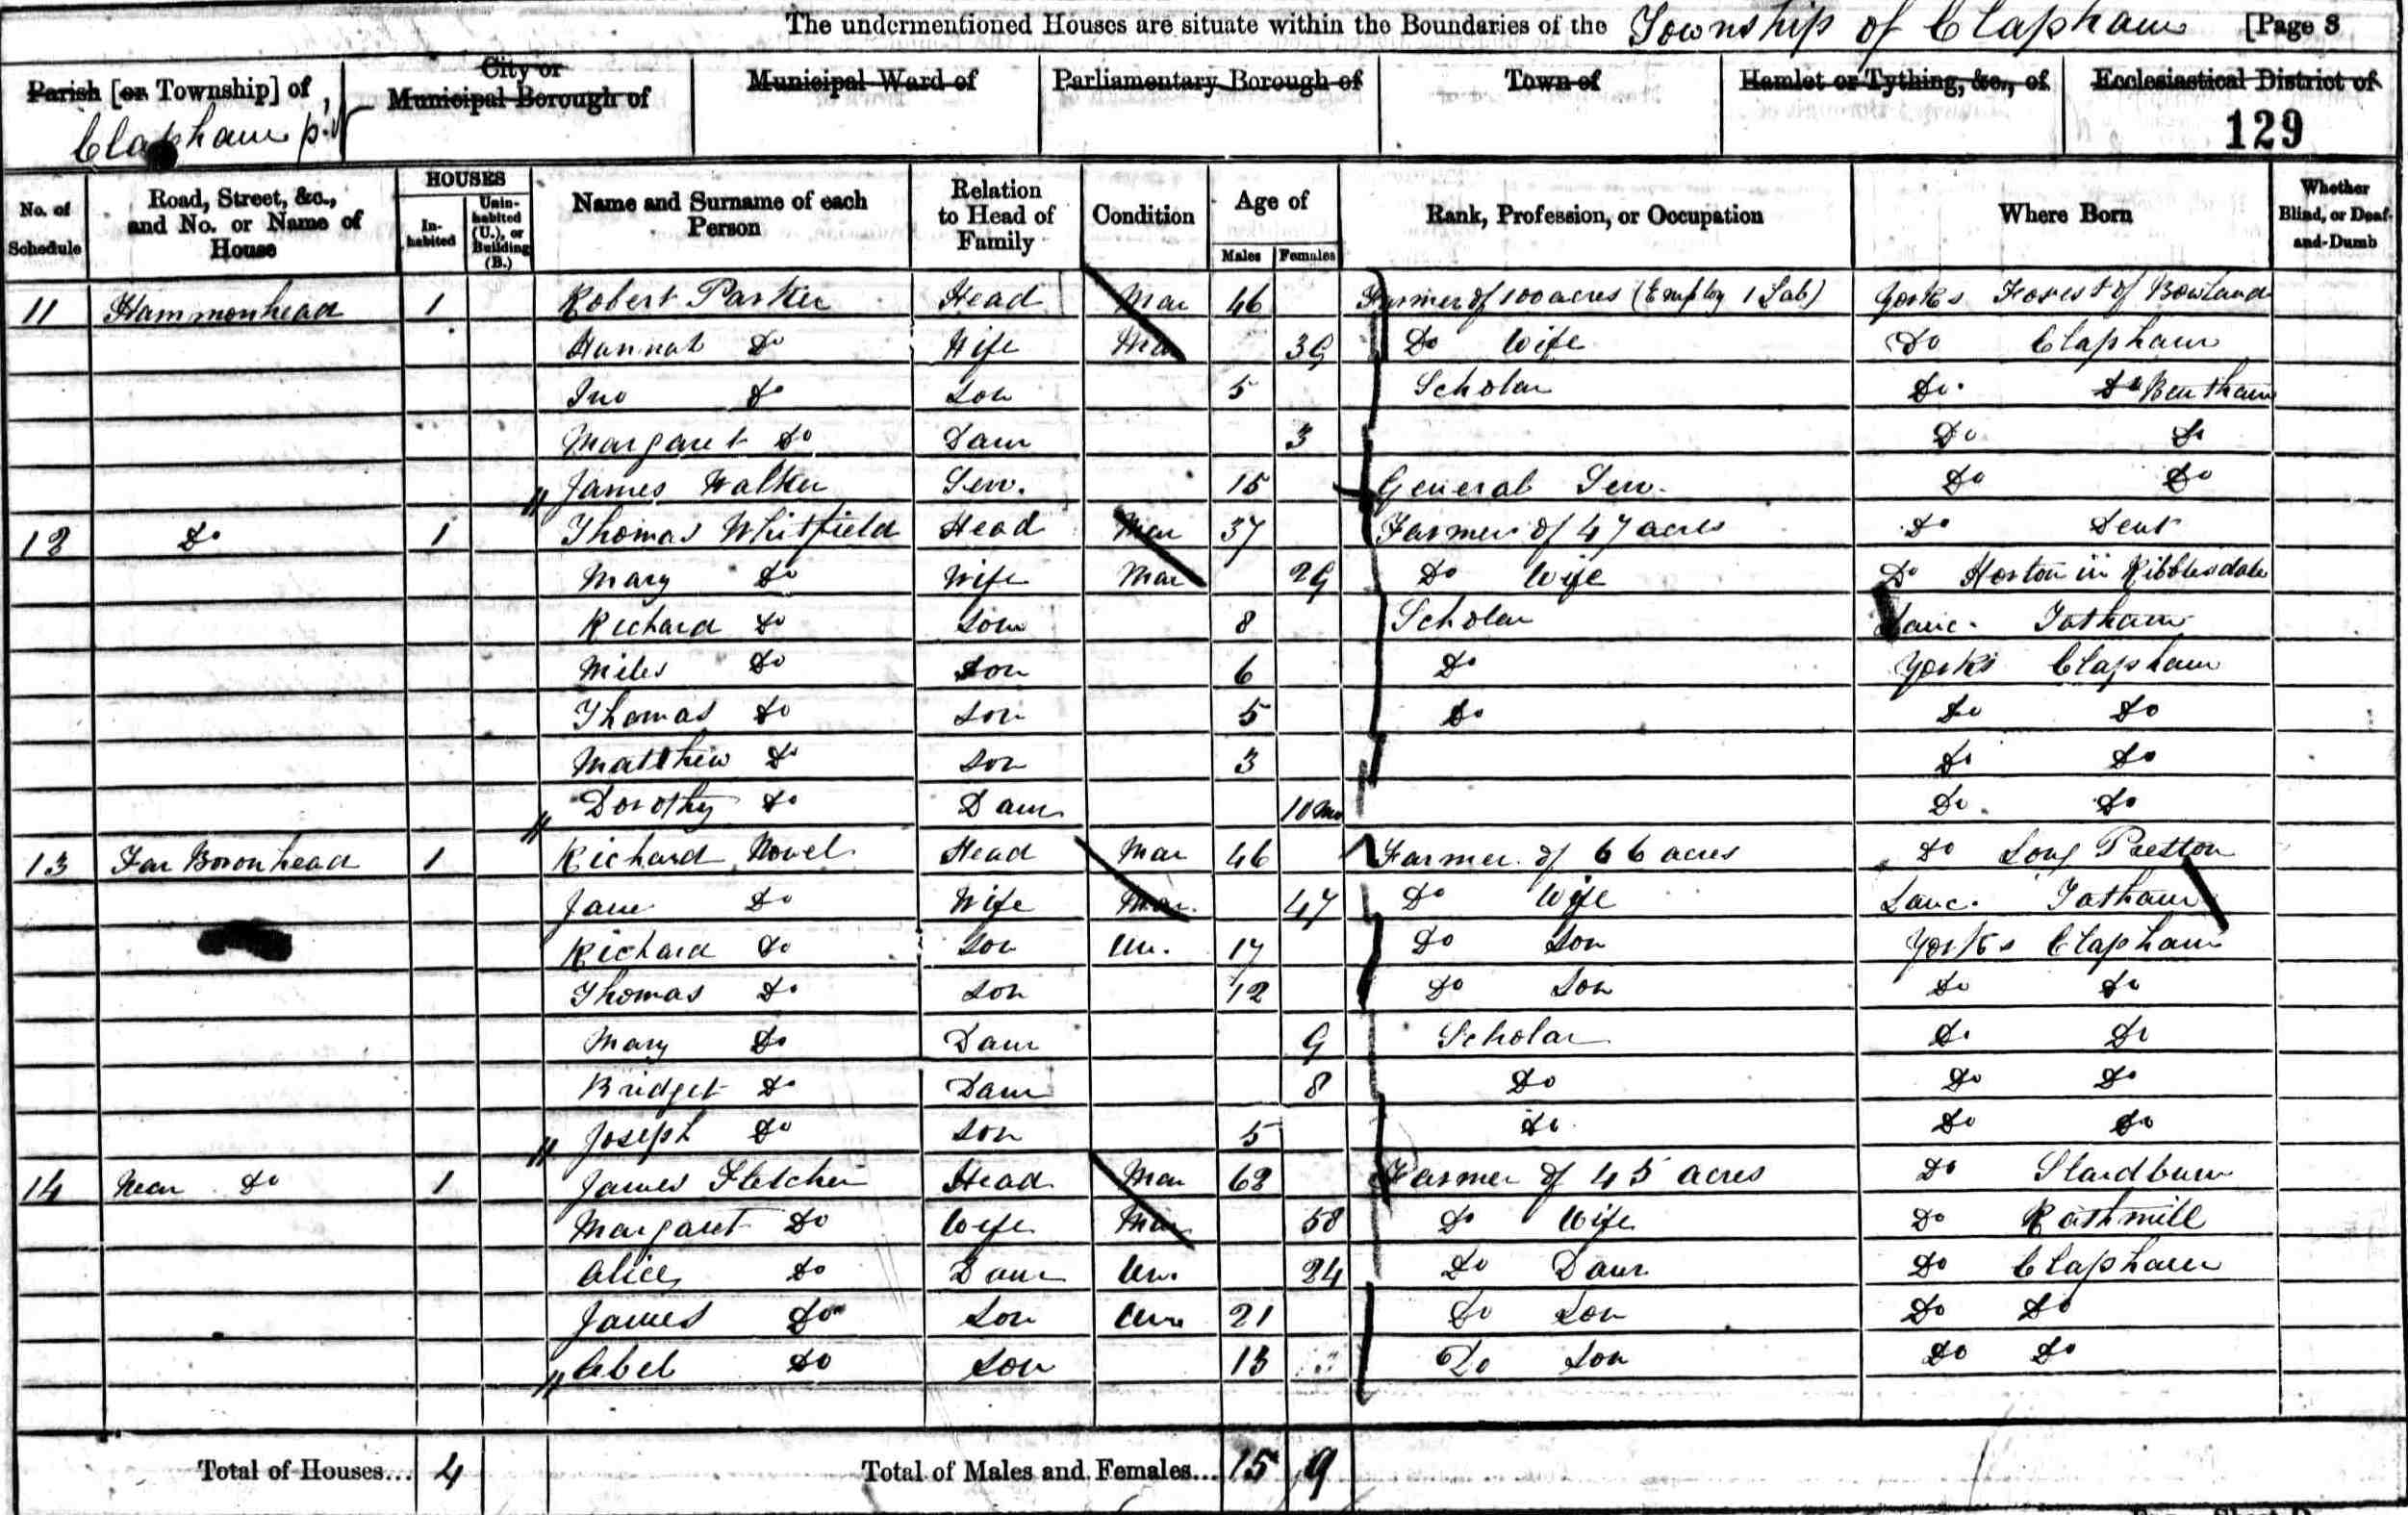 The undermentioned Houses are situate within the Boundaries of the Township of Clapham [Page 3
Parish [or Township] of City or Municipal Borough of Municipal Ward of Parliamentary Borough of Town of Hamlet or Tything, &c., of Ecclesiastical District of
Clapham 129
No. of Schedule Road, Street, &c., and No. or Name of House HOUSES Inhabited Uninhabited (U.), or Building (B.) Name and Surname of each Person Relation to Head of Family Condition Age of Males Females Rank, Profession, or Occupation Where Born Whether Blind, or Deaf-and-Dumb
11 Hammonhead 1 Robert Parker Head Mar 46 Farmer of 100 acres (Employ 1 Lab) Yorks Forest of Bowland
Hannah Do Wife Mar 39 Do Wife Do Clapham
Jno Do Son 5 Scholar Do. Do Bentham
Margaret Do Daur 3 Do Do
James Walker Serv. 15 General Serv. Do Do
12 Do 1 Thomas Whitfield Head Mar 37 Farmer of 47 acres Do Dent
Mary Do Wife Mar 29 Do Wife Do Horton in Ribblesdale
Richard Do Son 8 Scholar Lanc. Tatham
Miles Do Son 6 Do Yorks Clapham
Thomas Do Son 5 Do Do Do
Matthew Do Son 3 Do Do
Dorothy Do Daur 10 Mo Do. Do
13 Far Boronhead 1 Richard Nowel Head Mar 46 Farmer of 66 acres Do Long Preston
Jane Do Wife Mar. 47 Do Wife Lanc. Tatham
Richard Do Son Un. 17 Do Son Yorks Clapham
Thomas Do Son 12 Do Son Do Do
Mary Do Daur 9 Scholar Do Do
Bridget Do Daur 8 Do Do Do
Joseph Do Son 5 Do Do Do
14 Near Do 1 James Fletcher Head Mar 62 Farmer of 45 acres Do Slaidburn
Margaret Do Wife Mar 58 Do Wife Do Rathmill
Alice Do Daur Un. 24 Do Daur Do Clapham
James Do Son Un 21 Do Son Do Do
Abel Do Son 13 Do Son Do Do
Total of Houses... 4 Total of Males and Females... 15 9